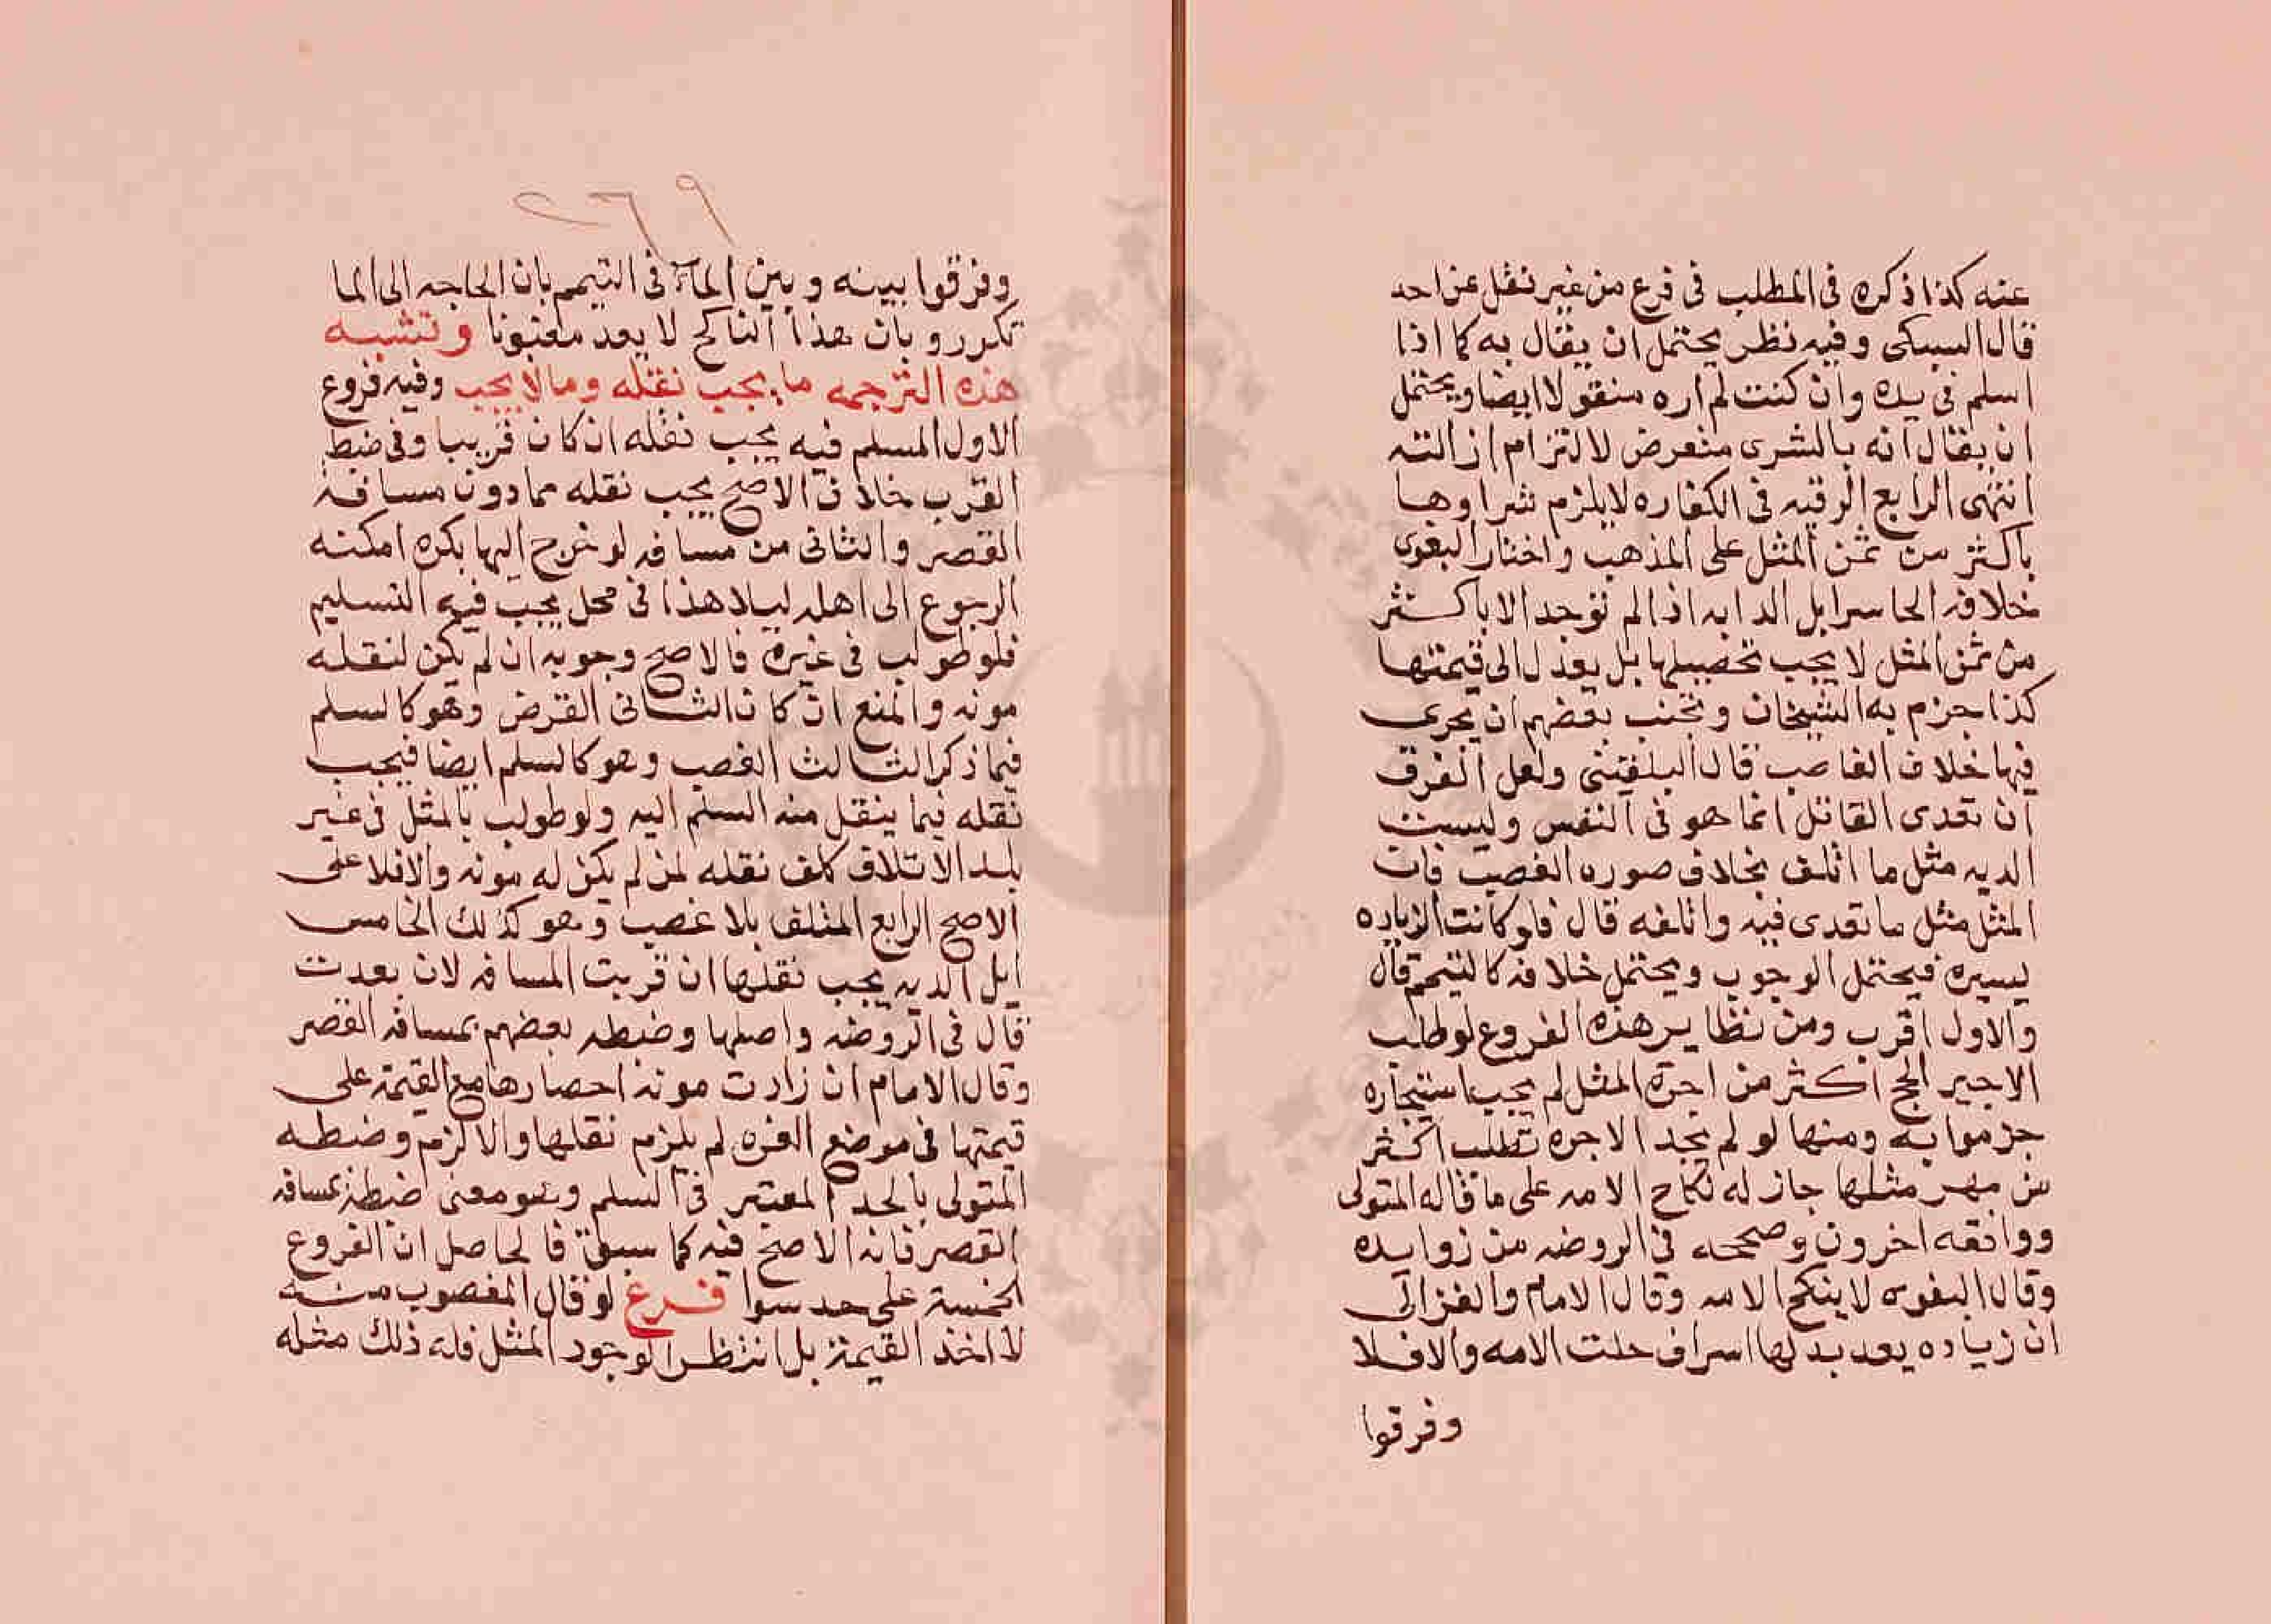 عنه كذا ذكره في المطلب في فرع من غير نقل عن احد
قال السبكى وفيه نظر يحتمل ان يقال به كما اذا
اسلم في يده وان كنت لم اره منقولا ايضا ويحتمل
ان يقال انه بالشرى متعرض لالتزام ازالته
انتهى الرابع الرقبه في الكفاره لا يلزم شراوها
باكثر من ثمن المثل على المذهب واختار البغوى
خلافه الخامس ابل الديه اذا لم توجد الا باكثر
من ثمن المثل لا يجب تحصيلها بل يعدل الى قيمتها
كذا جزم به الشيخان وتجنب بعضهم ان يجرى
فيها خلاف الغاصب قال البلقينى ولعل الفرق
ان تعدى القاتل انما هو في النفس وليست
الديه مثل ما اتلف بخلاف صوره الغصب فان
المثل مثل ما تعدى فيه واتلفه قال فلو كانت الزياده
يسيره فيحتمل الوجوب ويحتمل خلافه كالتيمم قال
والاول اقرب ومن نظاير هذه الفروع لو طلب
الاجير الحج اكثر من اجرة المثل لم يجب استيجاره
جزموا به ومنها لو لم يجد الا حره تطلب اكثر
من مهر مثلها جاز له نكاح الامه على ما قاله المتولى
ووافقه اخرون وصححه في الروضه من زوايده
وقال البغوى لا ينكح الامه وقال الامام والغزالى
ان زياده يعد بذلها اسراف حلت الامه والا فلا
وفرقوا
٢٦٩
وفرقوا بينه وبين المآء في التيمم بان الحاجه الى الما
تكرر وبان هذا الناكح لا يعد مغبونا وتشبه
هذه الترجمه ما يجب نقله وما لا يجب وفيه فروع
الاول المسلم فيه يجب نقله ان كان قريبا وفي ضبط
القرب خلاف الاصح يجب نقله مما دون مسافة
القصر والثانى من مسافه لو خرج اليها بكره امكنه
الرجوع الى اهله ليلا هذا في محل يجب فيه التسليم
فلو طولب في غيره فالاصح وجوبه ان لم يكن لنقله
مونه والمنع ان كان الثانى القرض وهو كالسلم
فيما ذكر الثالث الغصب وهو كالسلم ايضا فيجب
نقله فيما ينقل منه السلم اليه ولو طولب بالمثل في غير
بلد الاتلاف كلف نقله لمن لم يكن له مونه والا فلا على
الاصح الرابع المتلف بلا غصب وهو كذلك الخامس
ابل الديه يجب نقلها ان قربت المسافه لان بعدت
قال في الروضه واصلها وضبطه بعضهم بمسافه القصر
وقال الامام ان زادت مونة احصارها مع القيمة على
قيمتها في موضع العزه لم يلزم نقلها والا لزم وضبطه
المتولى بالحد المعتبر في السلم وهو معنى ضبطه بمسافه
القصر فانه الاصح فيه كما سبق فالحاصل ان الفروع
الخمسة على حد سوا فرع لو قال المغصوب منه
لا اخذ القيمة بل انتظر لوجود المثل فله ذلك مثله